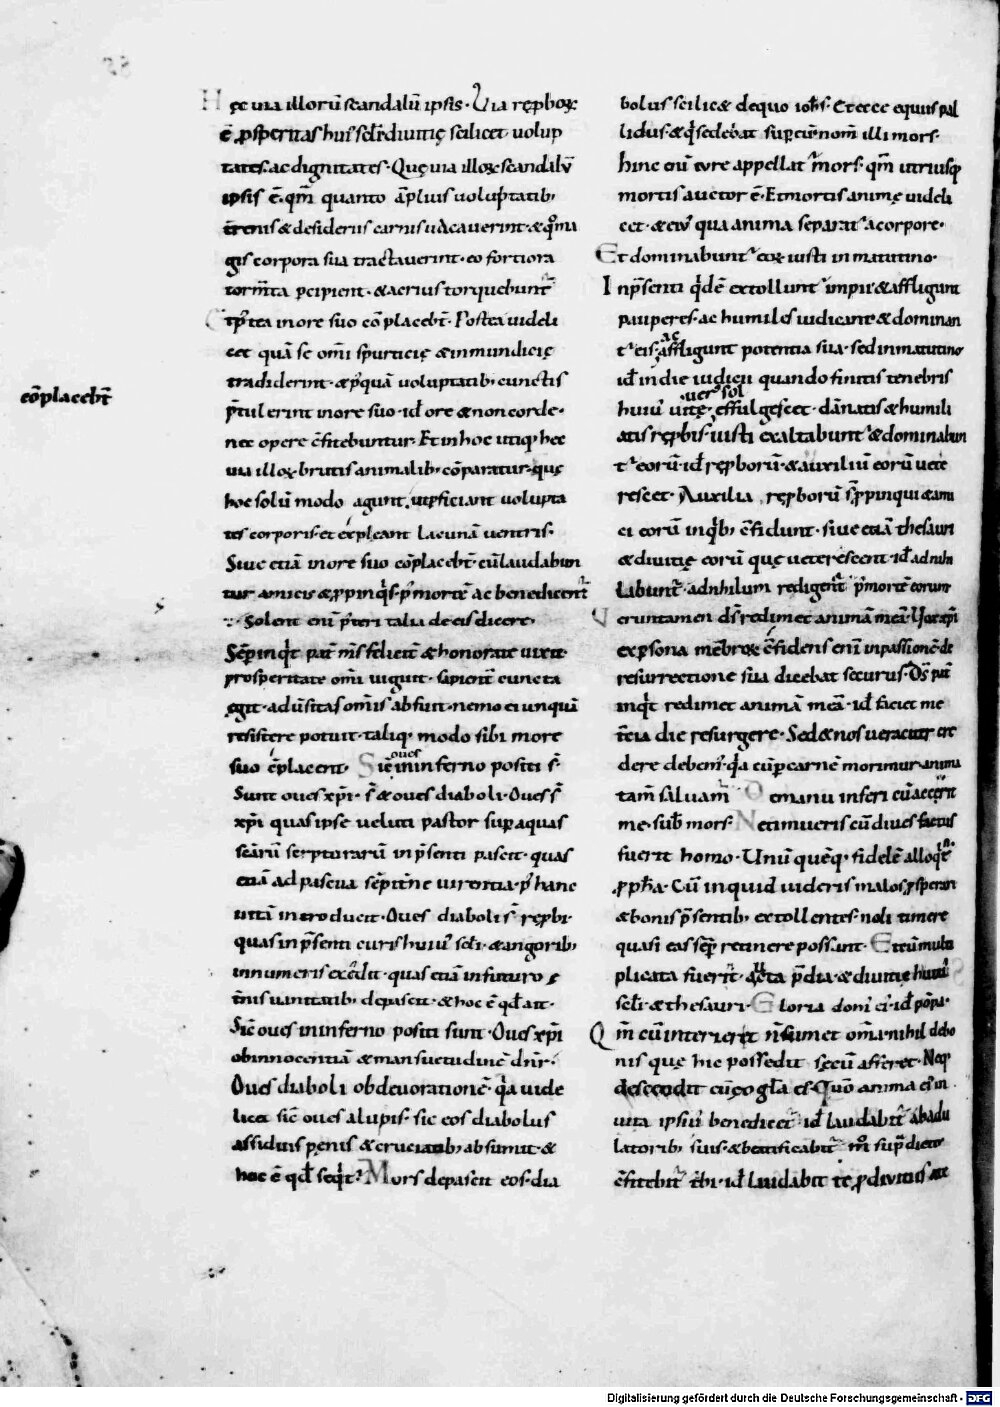 Hęc uia illorū scandalū ipsis. Uia rępboꝝ
ē ꝓsperitas huiꝰ scłi. diuitię scilicet uolup
tates. ac dignitates. Quę uia illoꝝ scandalū
ipsis ē. qm̄ quanto āplius uoluptatib;
tr̄enis & desideriis carnis uacauerint. & qͦ ma
gis corpora sua tractauerint. eo fortiora
torm̄ta ꝑcipient. & acrius torquebunt᷑
Et p̄tea in ore suo cōplacebt̄. Postea uideli
cet quā se om̄i spurticię & inmundicię
tradiderint. & p̄quā uoluptatib; cunctis
p̄tulerint in ore suo. id ore & non corde.
nec opere cōfitebuntur. Et in hoc utiq; hec
uia illoꝝ. brutis animalib; cōparatur. quę
hoc solū modo agunt. ut ꝑficiant uolupta
tes corporis. et expleant lacunā uentris.
Siue etiā in ore suo cōplacebt̄. cū laudabun
tur amicis & ꝓpinqͥs. p̄ mortē ac benedicent᷑
Solent enī p̄teri talia de eis dicere.
Sēp inqͥt pat̄ m̄s felicit̄ & honorate uixit.
prosperitate om̄i uiguit. sapient̄ cuncta
egit. aduersitas om̄is abfuit. nemo ei unquā
resistere potuit. taliq; modo sibi more
suo cōplacent. Sic̄ oues in inferno positi s̄.
Sunt oues xp̄i. s̄ & oues diaboli. Oues s̄
xp̄i quas ipse ueluti pastor sup aquas
scārū scrpturarū in p̄senti pascit. quas
etiā ad pascua sēpit̄ne uirentia. p̄ hanc
uitā introducit. Oues diaboli s̄ rępbi.
quas in p̄senti curis huiꝰ scłi. & angorib;
innumeris excēdit. quas etiā in futuro
t̄nis uanitatib; depascit. & hoc ē qd̄ ait.
Sic̄ oues in inferno positi sunt. Oues xp̄i
ob innocentiā & mansuetudinē dn̄r.
Oues diaboli ob deuorationē. qͥa uide
licet sic̄ oues a lupis. sic eos diabolus
assiduis pęnis & cruciatib; absumit. &
hoc ē qd̄ seqͥt᷑. Mors depascit eos. dia
cōplacebt̄
bolus scilicet de quo ioh̄s. Et ecce equus pal
lidus. & qͥ sedebat sup eū. nom̄ illi mors.
hinc enī iure appellat᷑ mors. qm̄ utriusq;
mortis auctor ē. Et mortis animę uideli
cet. & eiꝰ qua anima separat᷑ a corpore.
Et dominabunt᷑ eoꝝ iusti in matutino.
In p̄senti qͥdē extollunt᷑ impii & affligunt
pauperes. ac humiles iudicant & dominan
t᷑ eis. ac affligunt potentia sua. sed in matutino
id̄ in die iudicii quando finitis tenebris
huiꝰ uitę. uerꝰ sol effulgescet. dānatis & humili
atis rępbis. iusti exaltabunt᷑ & dominabun
t᷑ eorū. id̄ rępborū. & auxiliū eorū uete
rescet. Auxilia rępborū s̄ ꝓpinqui & ami
ci eorū in qͥb; cōfidunt. siue etiā thesauri
& diuitię eorū quę ueterescent. id̄ ad nihi
labunt᷑. ad nihilum redigent᷑ p̄ mortē eorum
Veruntamen ds̄ redimet animā meā. Uox xp̄i
ex ꝑsona mēbroꝝ. cōfidens enī in passione. de
resurrectione sua dicebat securus. Ds̄ pat̄
inqͥt redimet animā meā. id̄ faciet me
t̄cia die resurgere. Sed & nos ueraciter cre
dere debemꝰ. qͥa cū ꝑ carnē morimur anima
tam̄ saluam᷑ De manu inferi cū accepit
me. sub̄ mors. Ne timueris cū diues factus
fuerit homo. Unū quēq; fidelē alloqͥt᷑
ꝓph̄a. Cū inquid uideris malos ꝓsperari
& bonis p̄sentib; extollentes. noli timere
quasi eas sēp retinere possunt. Et cū multi
plicata fuerit. aucta p̄dia. & diuitię huiꝰ
scłi. & thesauri. Gloria domꝰ eiꝰ. id̄ pōpa.
Qm̄ cū interierit n̄ sumet om̄a. nihil de bo
nis quę hic possedit secū afferet. Neq;
descendit cū eo gl̄a eiꝰ. Quō anima eiꝰ in
uita ipsiꝰ benedicet᷑. id̄ laudabit᷑ ab adu
latorib; suis. & beatificabit᷑.
cōfitebit᷑ tibi. id̄ laudabit te ꝓ diuitiis
Digitalisierung gefördert durch die Deutsche Forschungsgemeinschaft - DFG